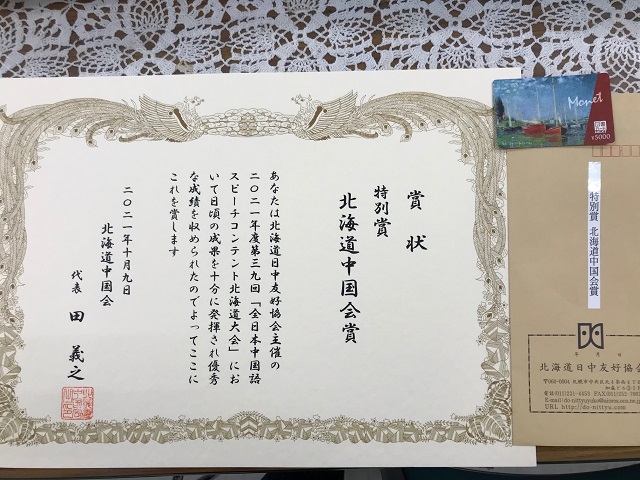 賞状
特別賞
北海道中国会賞
あなたは北海道日中友好協会主催の
二〇二一年度第三九回「全日本中国語
スピーチコンテント北海道大会」にお
いて日頃の成果を十分に発揮され優秀
な成績を収められたのでよってここに
これを賞します
二〇二一年十月九日
北海道中国会
代表 田 義之
Monet
¥5000
特別賞 北海道中国会賞
年 月 日
北海道日中友好協会
URL http://do-nittyu.com